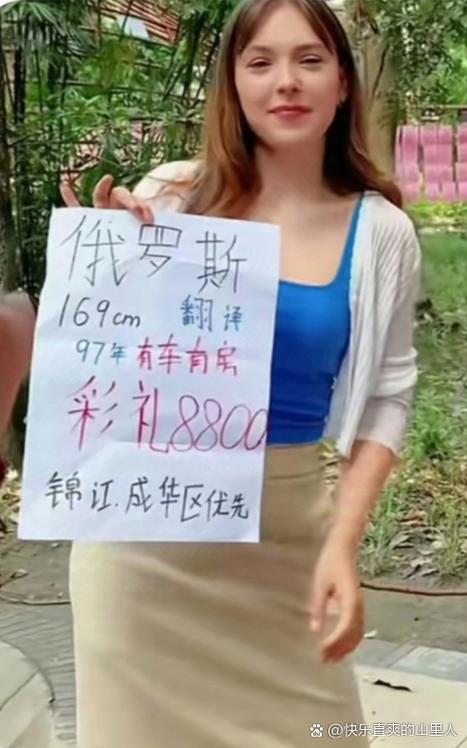 俄罗斯
169cm 翻译
97年有车有房
彩礼8800
锦江.成华区优先
@快乐直爽的山里人